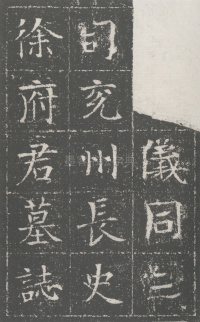 儀同三
司兖州長史
徐府君墓誌